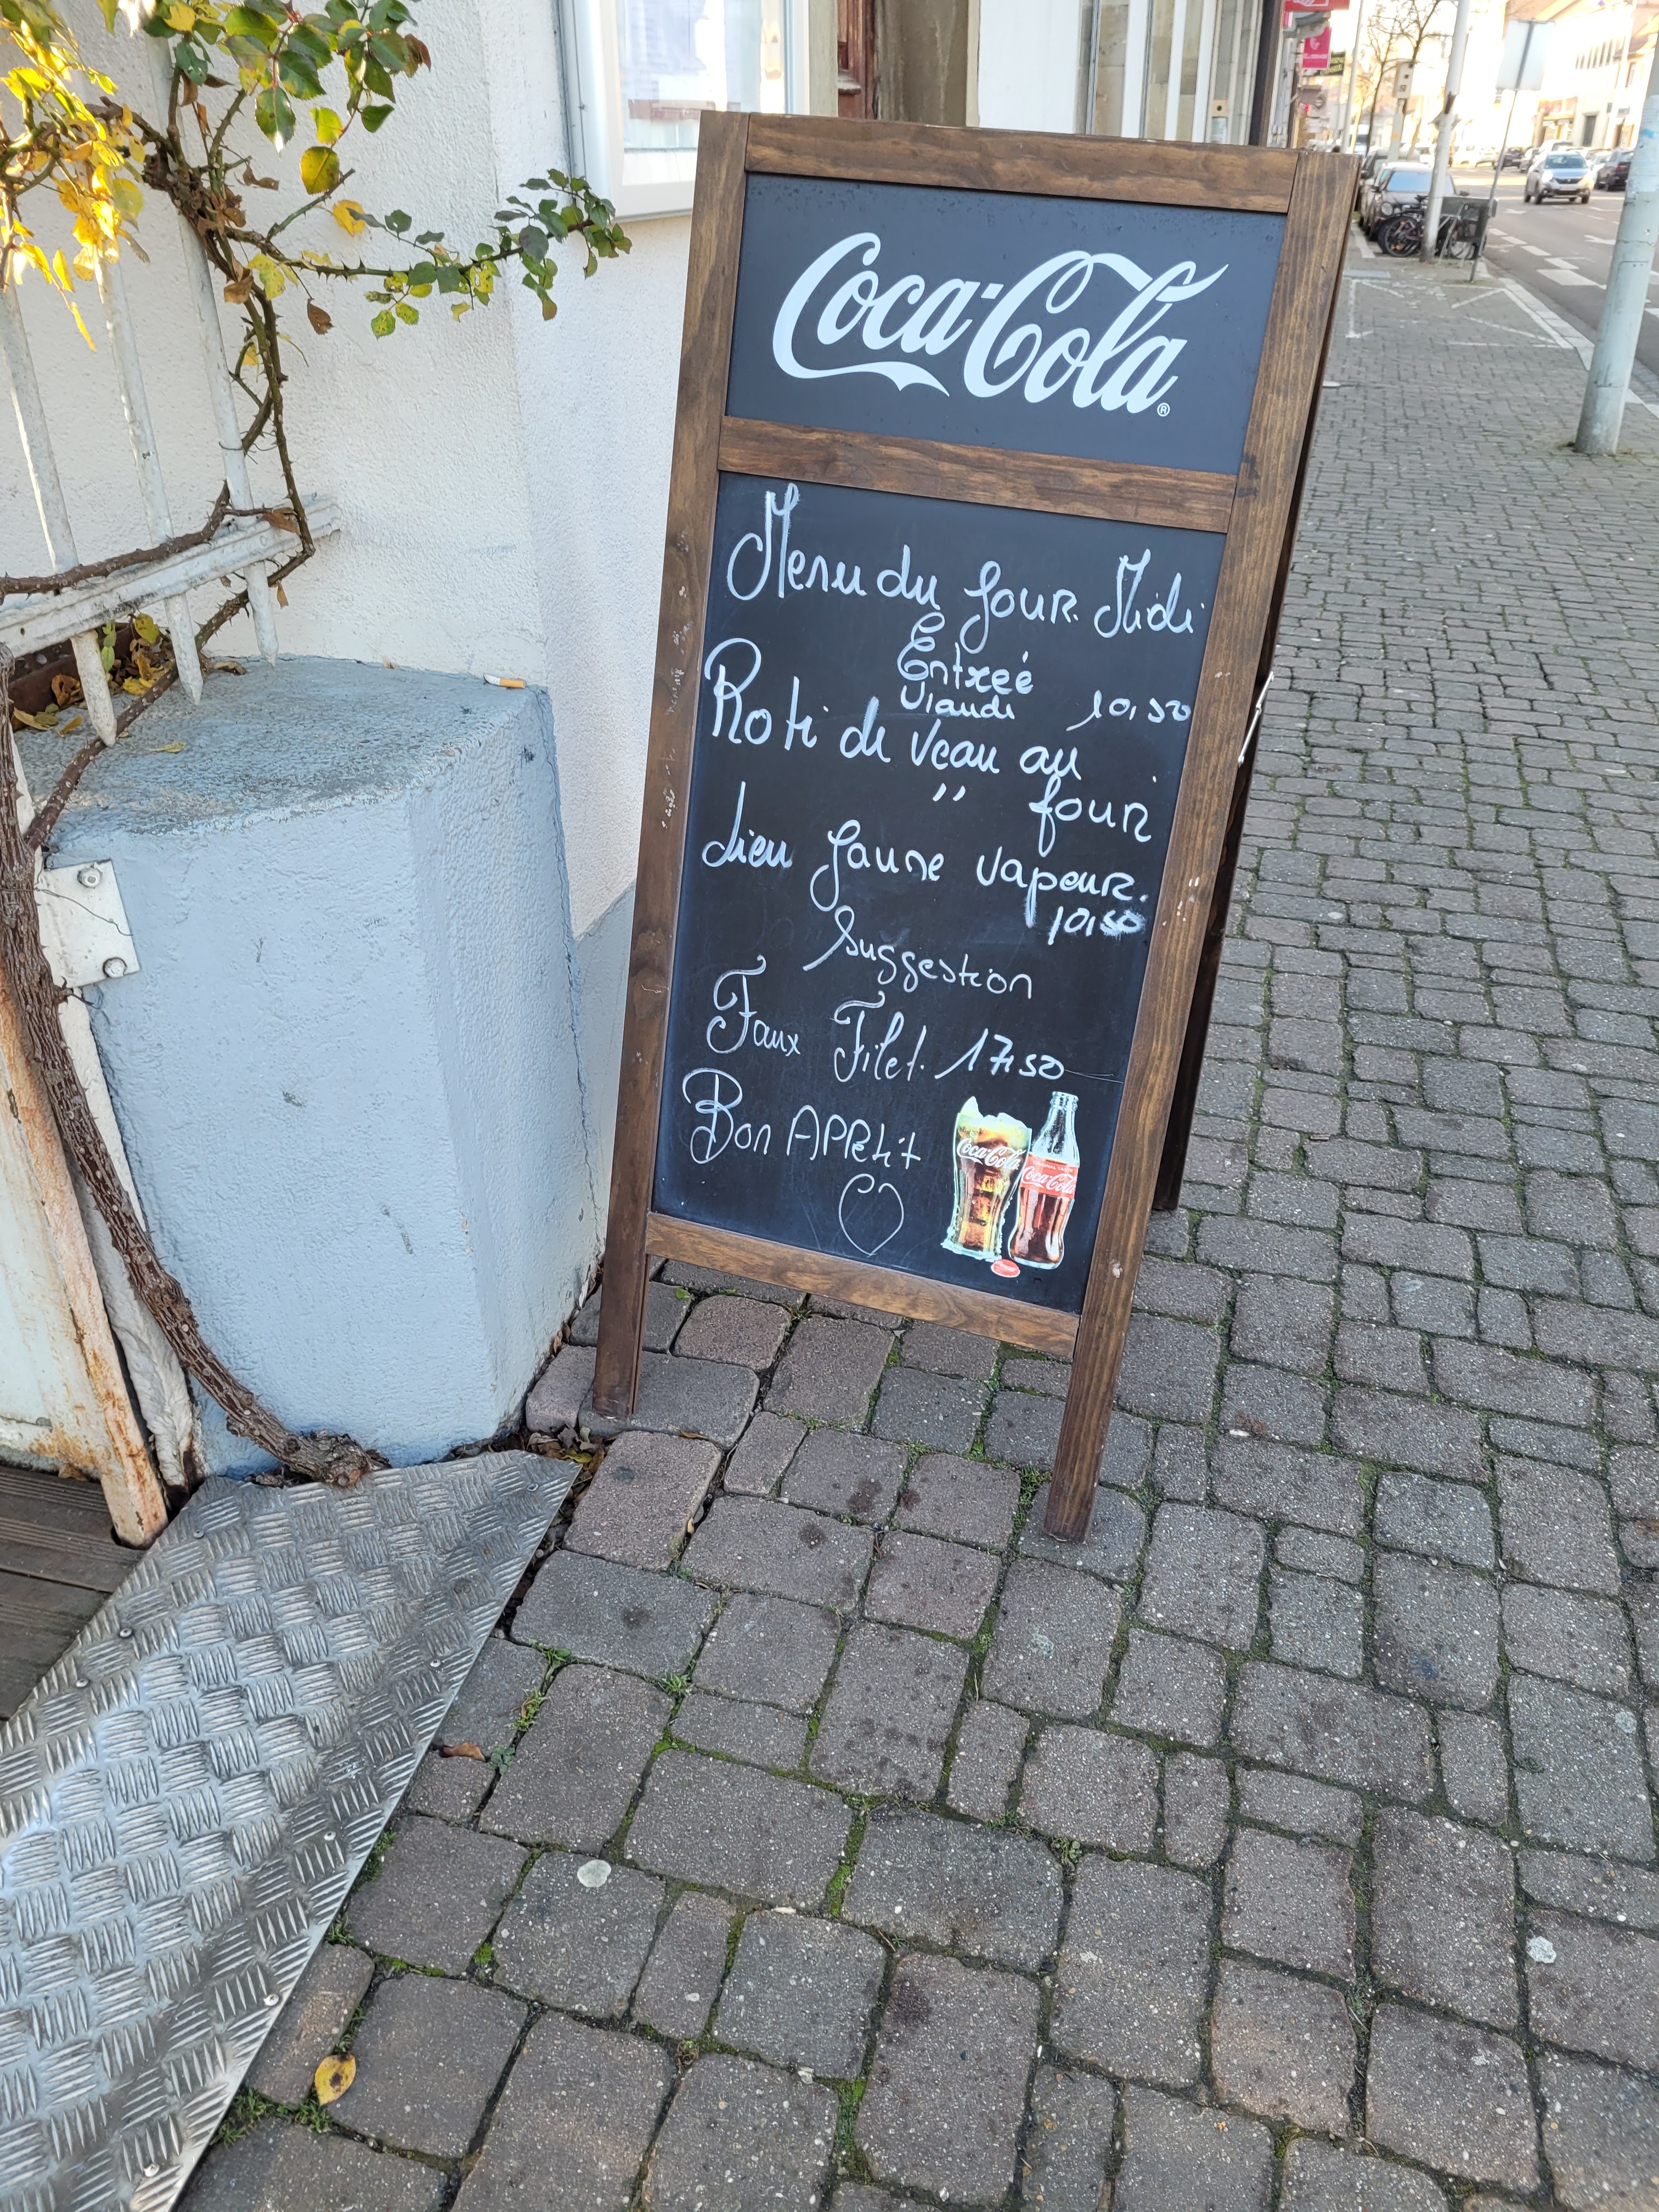 Coca-Cola®
Menu du Jour Midi
Entreé
Viande 10,50
Roti de veau au
" four
Lieu Jaune vapeur.
10,50
Suggestion
Faux Filet. 17,50
Bon APPetit
Coca-Cola
Coca-Cola